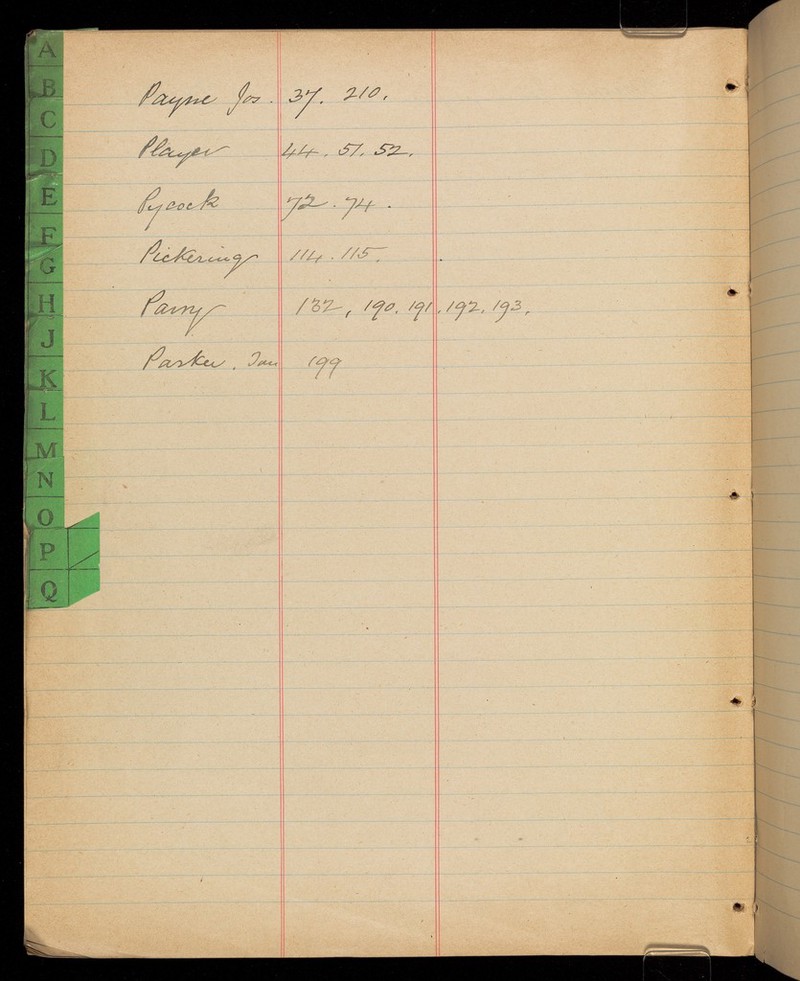 A
B
C
D
E
F
G
H
J
K
L
M
N
O
P
Q
Payne Jos. 37. 210.
Player 44. 51. 52.
Pycock 72. 74.
Pickering 114. 115.
Parry 132, 190. 191. 192. 193.
Parker. Jan 199